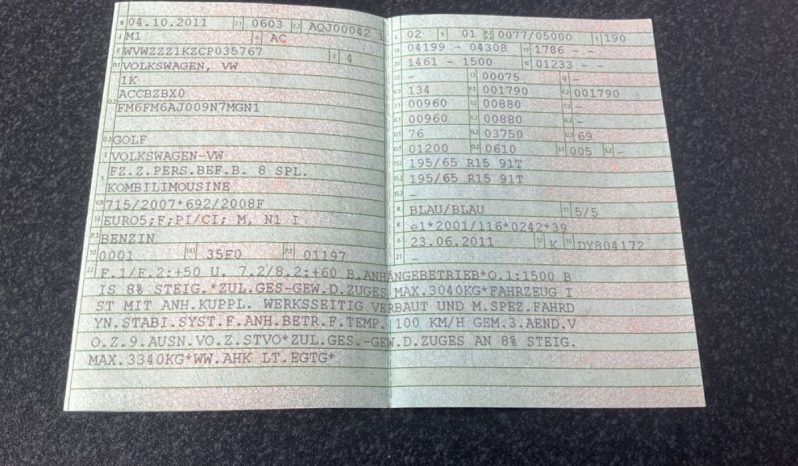 B 04.10.2011 2.1 0603 2.2 AQJ00042
J M1 4 AC
E WVWZZZ1KZCP035767 3 4
D.1 VOLKSWAGEN, VW
1K
D.2 ACCBZBX0
FM6FM6AJ009N7MGN1
D.3 GOLF
2 VOLKSWAGEN-VW
5 FZ.Z.PERS.BEF.B. 8 SPL.
KOMBILIMOUSINE
V.9 715/2007*692/2008F
14 EURO5;F;PI/CI; M, N1 I
P.3 BENZIN
10 0001 14.1 35F0 P.1 01197
L 02 9 01 P.2/P.4 0077/05000 T 190
18 04199 - 04308 19 1786 - -
20 1461 - 1500 G 01233 - -
12 - 13 00075 Q -
V.7 134 F.1 001790 F.2 001790
7.1 00960 7.2 00880 7.3 -
8.1 00960 8.2 00880 8.3 -
U.1 76 U.2 03750 U.3 69
O.1 01200 O.2 0610 S.1 005 S.2 -
15.1 195/65 R15 91T
15.2 195/65 R15 91T
15.3 -
R BLAU/BLAU 11 5/5
K e1*2001/116*0242*39
6 23.06.2011 17 K 16 DY804172
21 -
22 F.1/F.2:+50 U. 7.2/8.2:+60 B.ANHÄNGEBETRIEB*O.1:1500 B
IS 8% STEIG.*ZUL.GES-GEW.D.ZUGES MAX.3040KG*FAHRZEUG I
ST MIT ANH.KUPPL. WERKSSEITIG VERBAUT UND M.SPEZ.FAHRD
YN.STABI.SYST.F.ANH.BETR.F.TEMP. 100 KM/H GEM.3.AEND.V
O.Z.9.AUSN.VO.Z.STVO*ZUL.GES.-GEW.D.ZUGES AN 8% STEIG.
MAX.3340KG*WW.AHK LT.EGTG*